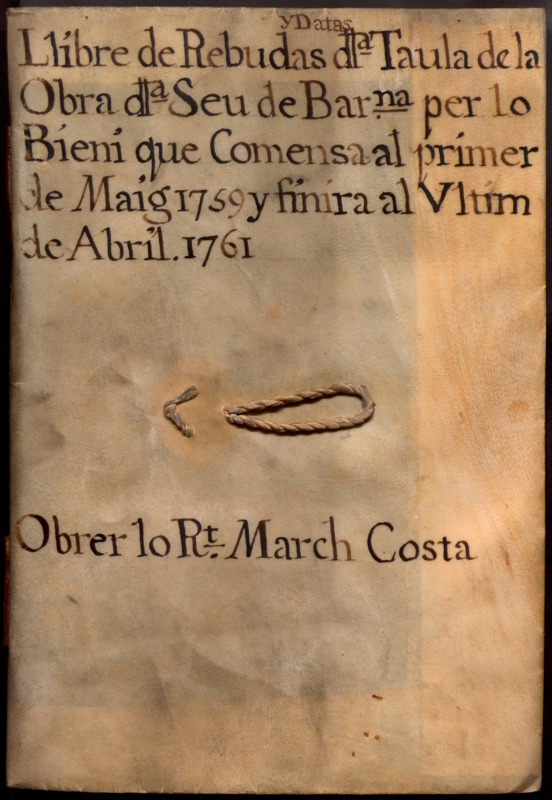 y Datas
Llibre de Rebudas dlª Taula de la
Obra dlª Seu de Barna per lo
Bieni que Comensa al primer
de Maig 1759 y finira al Ultim
de Abril. 1761
Obrer lo Rt. March Costa